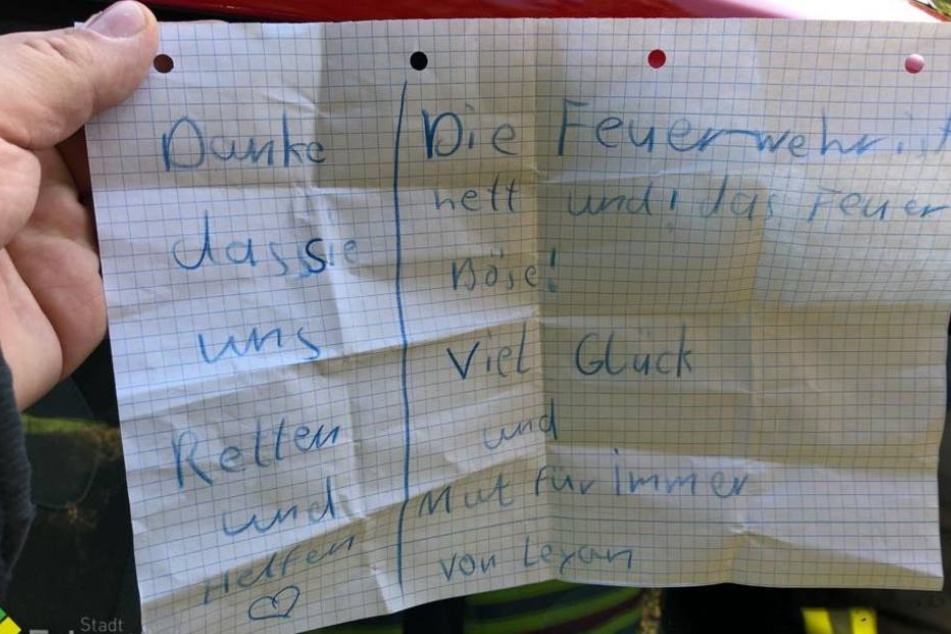 Danke
dassie
uns
Retten
und
Helfen
♡
Die Feuerwehr is
nett und! das Feuer
Böse!
Viel Glück
und
Mut für immer
von Leyan
Stadt